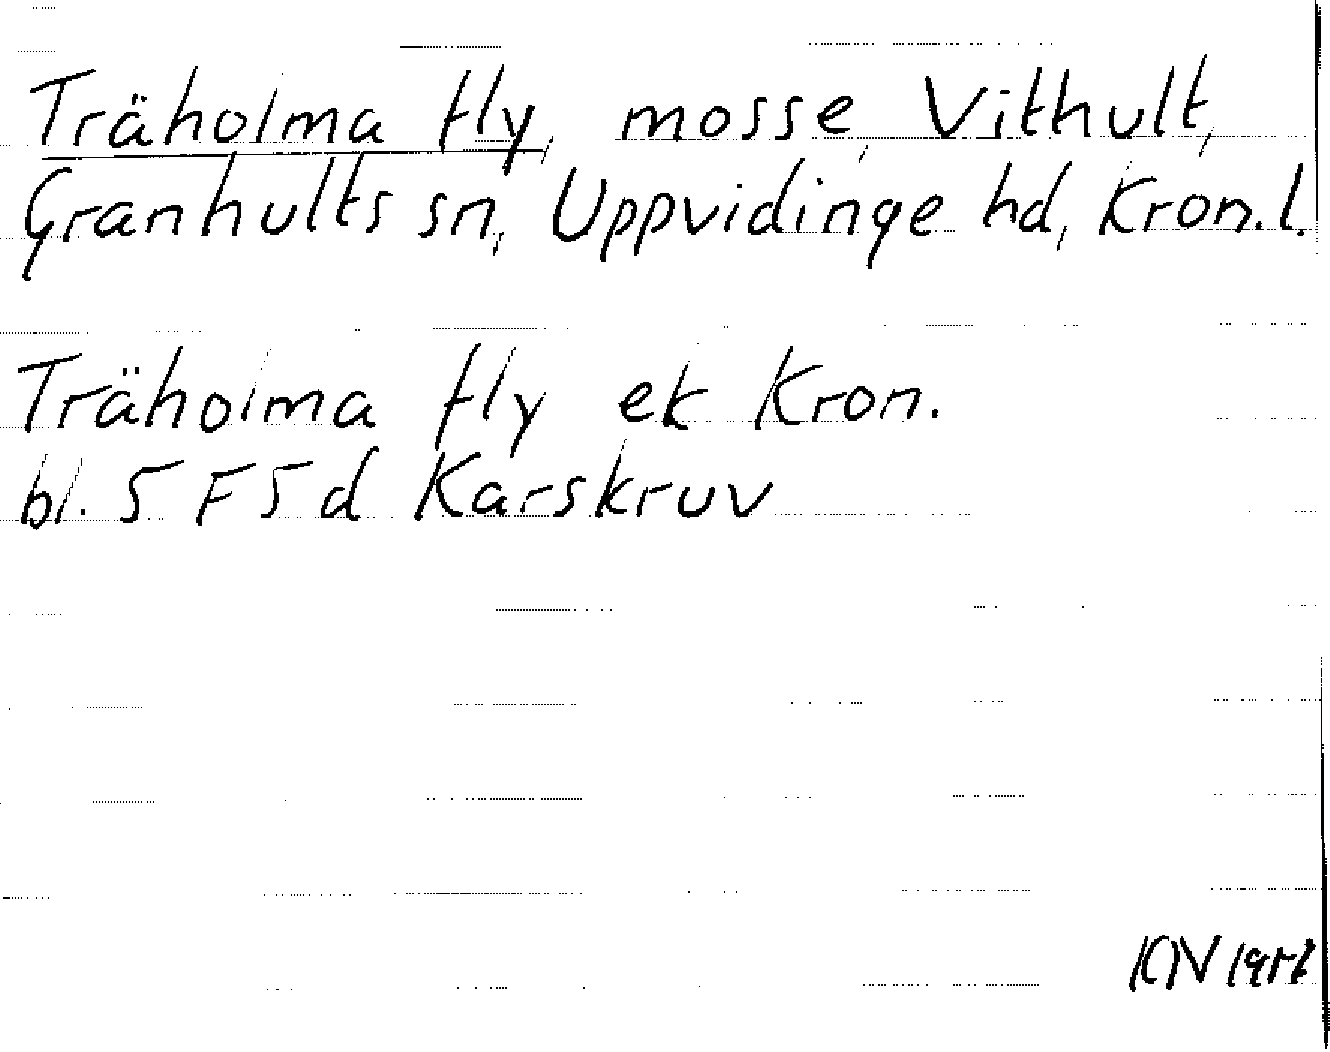 Träholma fly, mosse, Vithult,
Granhults sn, Uppvidinge hd, Kron.l.
Träholma fly ek Kron.
bl. 5 F 5 d Karskruv